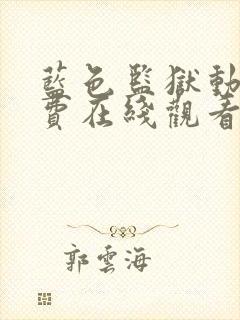 藍色監獄動
費在綫觀看
郭雲海